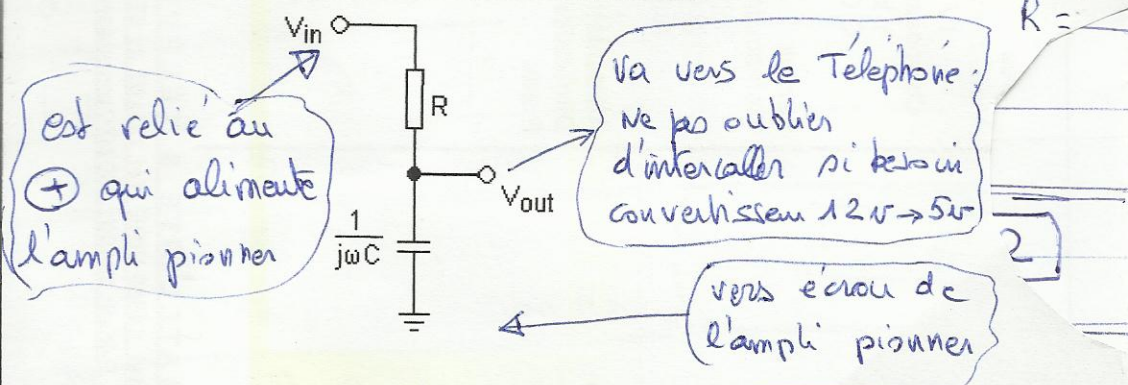 Vin
R =
R
est relié au
+ qui alimente
l'ampli pionner
Va vers le Téléphone.
Ne pas oublier
d'intercaller si besoin
convertisseur 12v → 5v
Vout
1
jωC
2
vers écrou de
l'ampli pionner